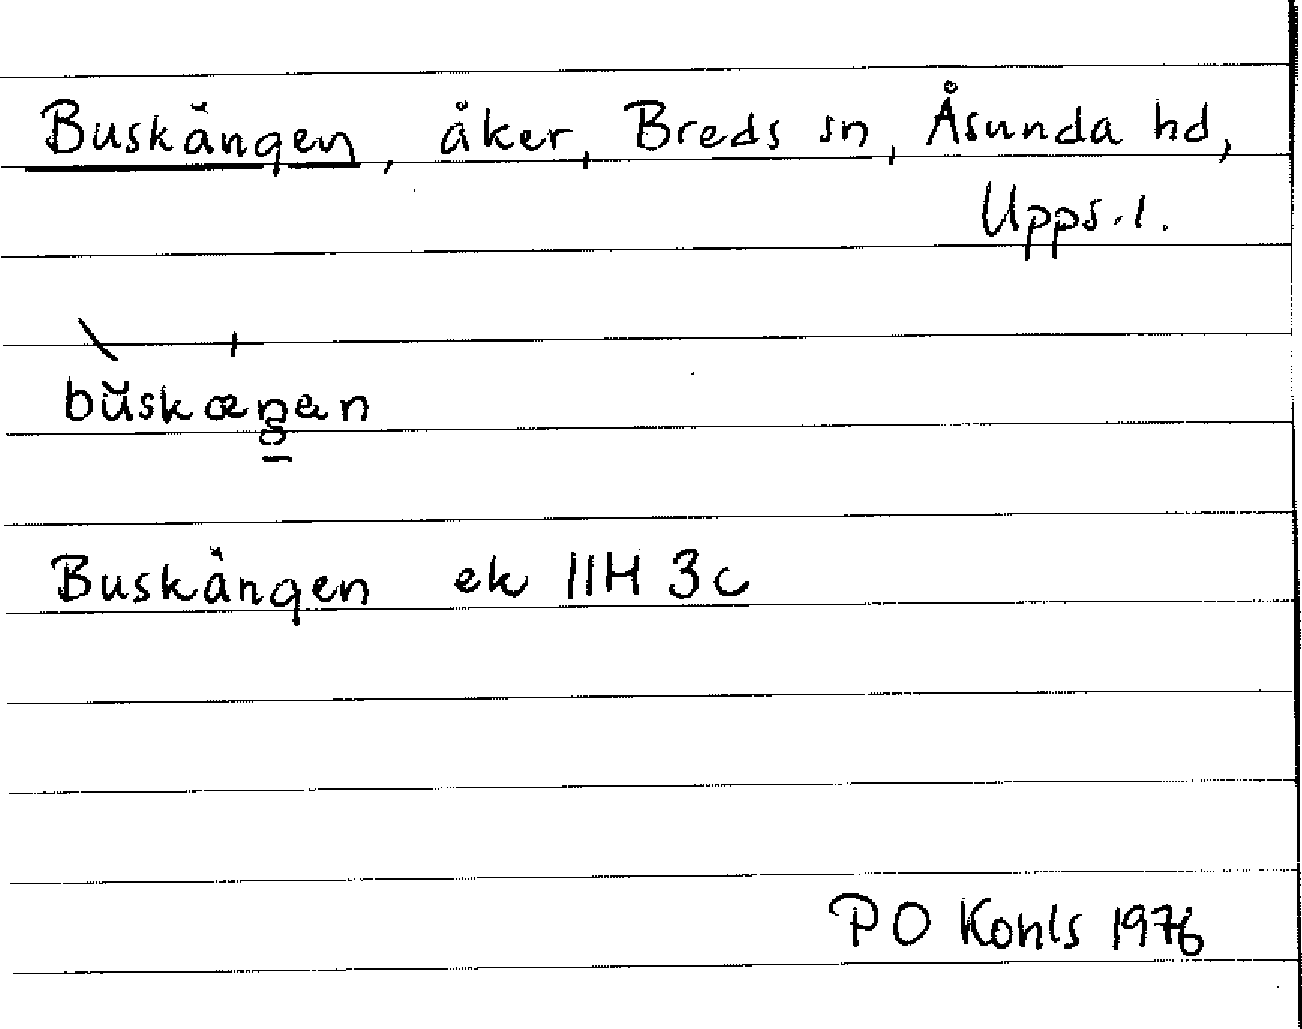 Buskängen, åker, Breds sn, Åsunda hd,
Upps. l.
bŭskæŋen
Buskängen ek 11H 3c
P O Konls 1976